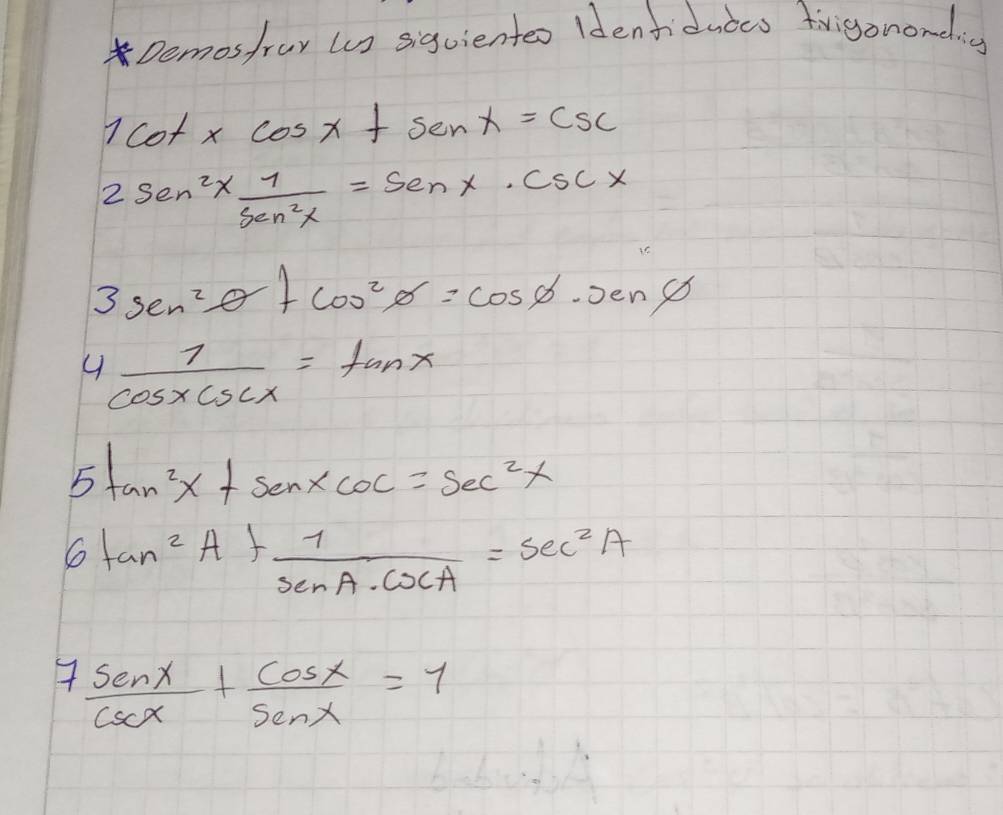 * Demostrar las siguientes Identidades trigonometric
1 cot x cos x + sen x = csc
2 sen²x 1/sen²x = sen x . csc x
3 sen² θ + cos² ø = cos ø . sen ø
4 1/cos x csc x = tan x
5 tan²x + sen x coc = sec²x
6 tan² A + 1/sen A . csc A = sec² A
7 sen x/csc x + cos x/sen x = 1